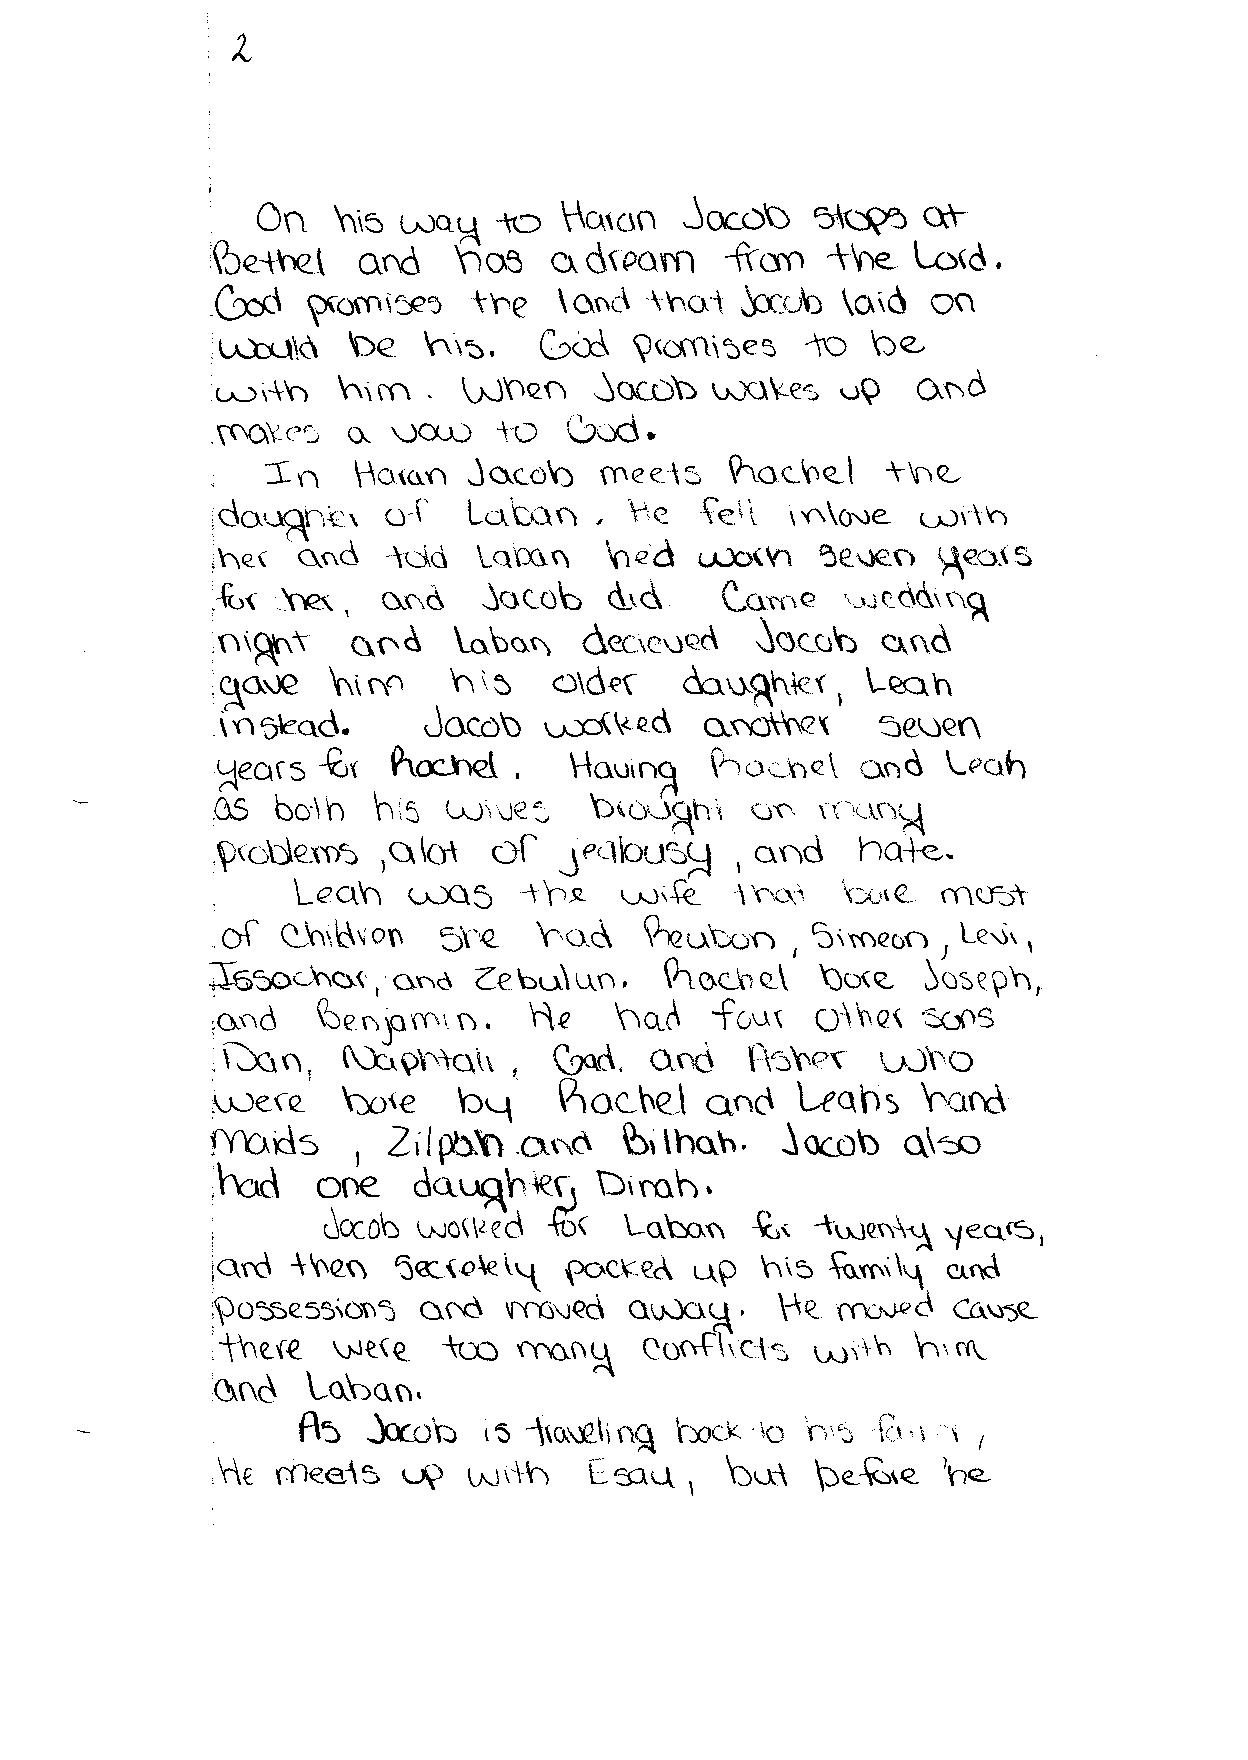 2
On his way to Haran Jacob stops at
Bethel and has a dream from the Lord.
God promises the land that Jacob laid on
would be his. God promises to be
with him. When Jacob wakes up and
makes a vow to God.
In Haran Jacob meets Rachel the
daughter of Laban. He fell inlove with
her and told Laban hed work seven years
for her, and Jacob did. Came wedding
night and Laban decieved Jacob and
gave him his older daughter, Leah
instead. Jacob worked another seven
years for Rachel. Having Rachel and Leah
as both his wives brought on many
problems, alot of jealousy, and hate.
Leah was the wife that bore most
of Children she had Reuben, Simeon, Levi,
Issachar, and Zebulun. Rachel bore Joseph,
and Benjamin. He had four other sons
Dan, Naphtali, Gad, and Asher who
were bore by Rachel and Leahs hand
maids, Zilpah and Bilhah. Jacob also
had one daughter, Dinah.
Jacob worked for Laban for twenty years,
and then secretely packed up his family and
possessions and moved away. He moved cause
there were too many conflicts with him
and Laban.
As Jacob is traveling back to his
He meets up with Esau, but before he